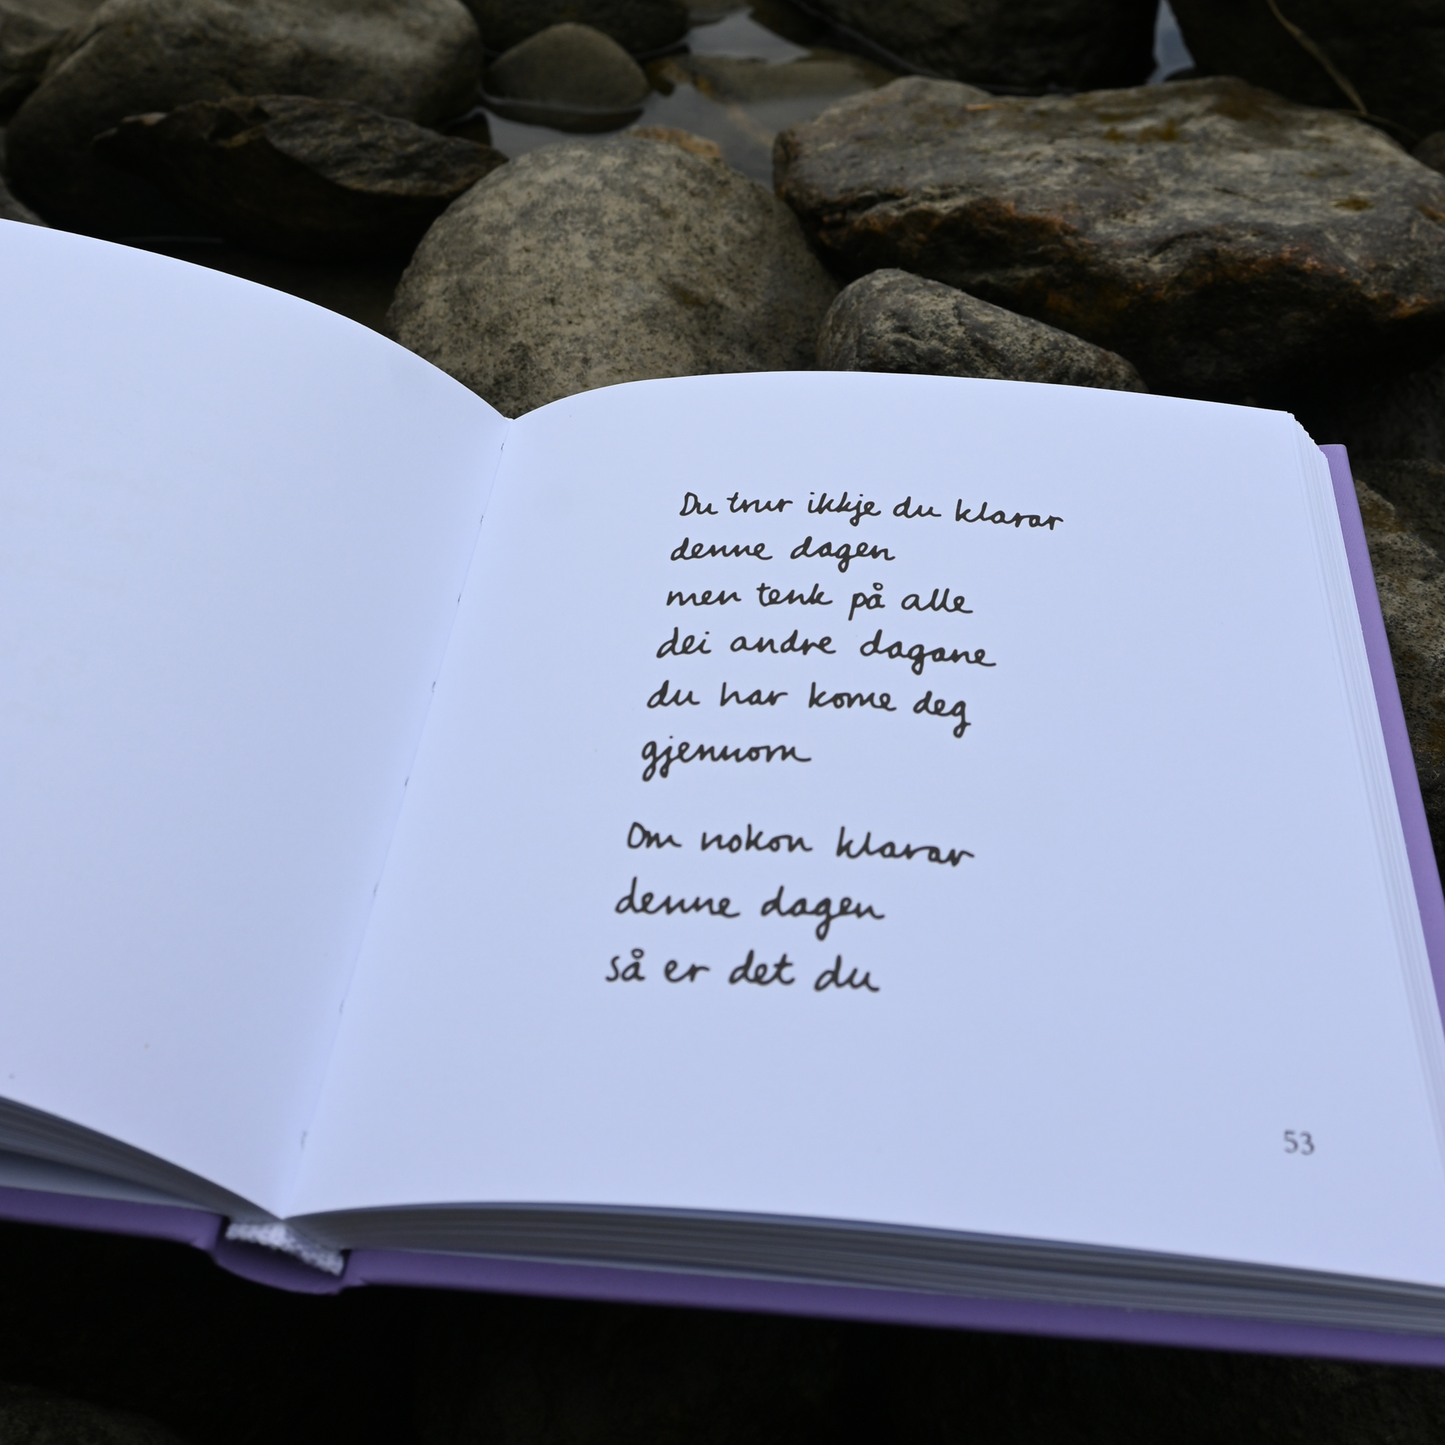 Du trur ikkje du klarar
denne dagen
men tenk på alle
dei andre dagane
du har kome deg
gjennom
Om nokon klarar
denne dagen
så er det du
53